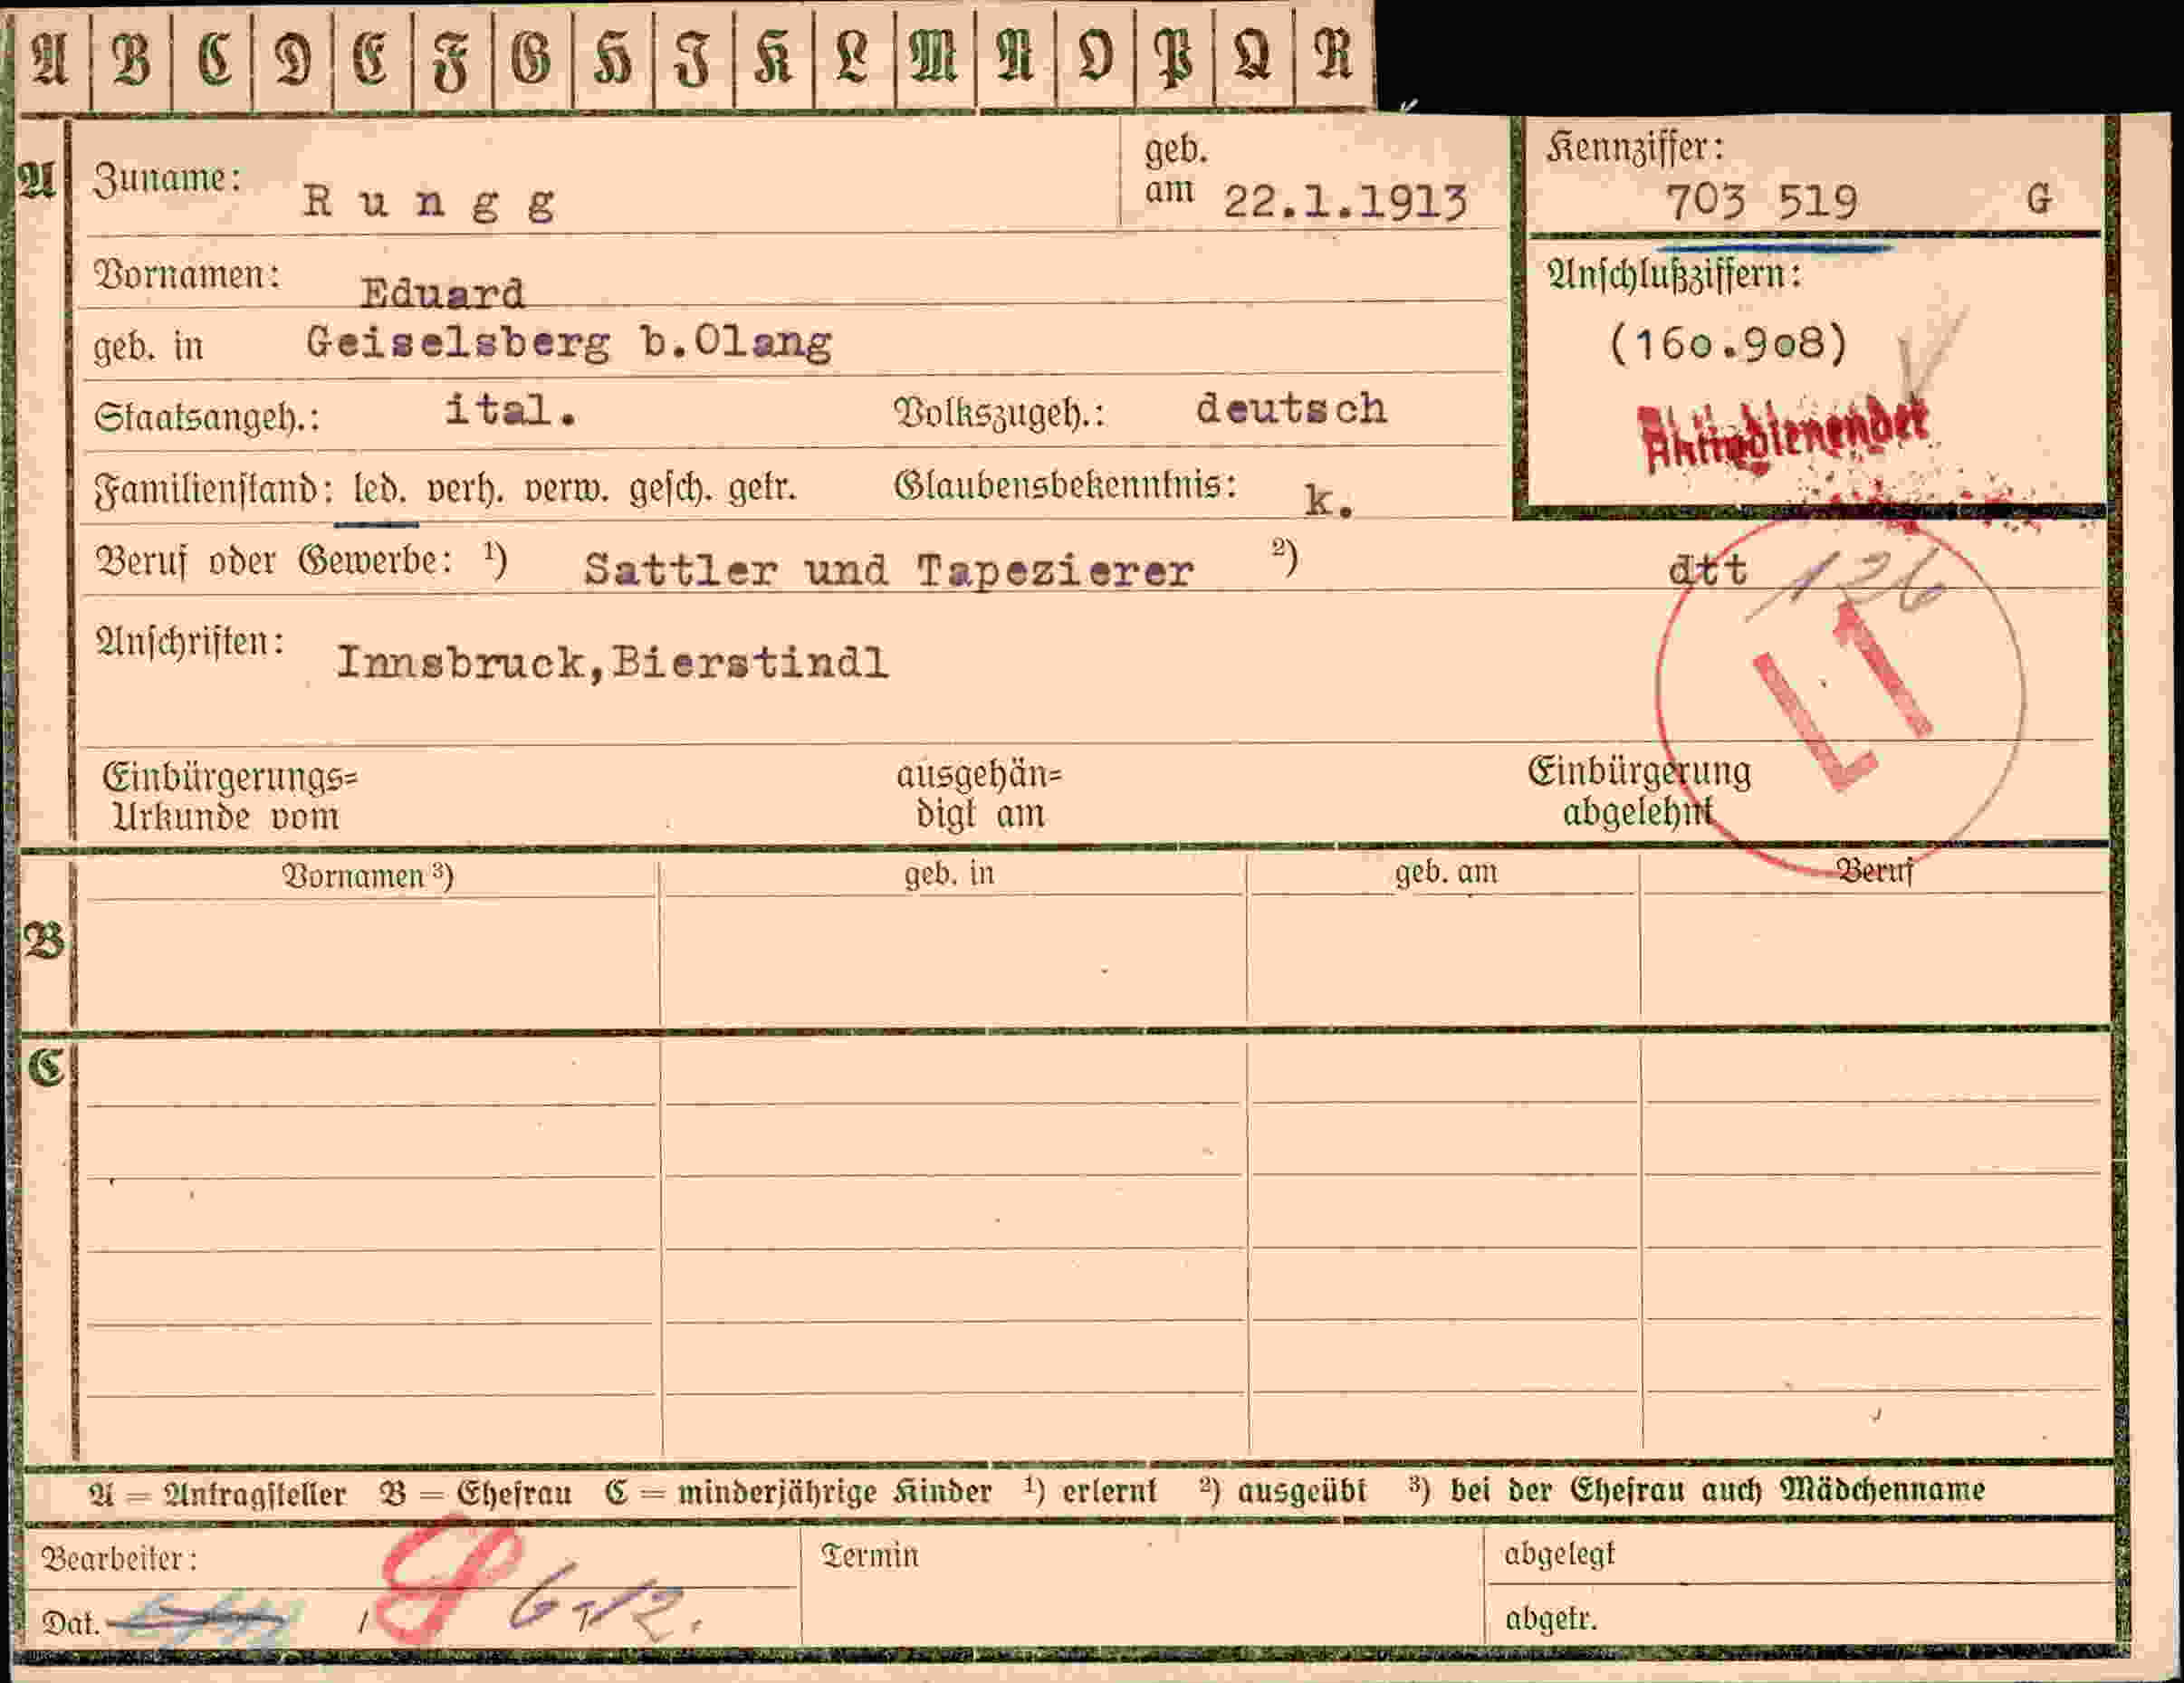 A B C D E F G H I K L M N O P Q R
A
Zuname: Rungg
geb. am 22.1.1913
Kennziffer:
703 519 G
Vornamen: Eduard
Anschlußziffern:
(160.908)
geb. in Geiselsberg b.Olang
Staatsangeh.: ital. Volkszugeh.: deutsch
Familienstand: led. verh. verw. gesch. getr. Glaubensbekenntnis: k.
Beruf oder Gewerbe: ¹) Sattler und Tapezierer ²) dtt 126
Anschriften: Innsbruck,Bierstindl
L1
Einbürgerungs=
Urkunde vom
ausgehän=
digt am
Einbürgerung
abgelehnt
B
Vornamen ³) geb. in geb. am Beruf
C
A = Antragsteller B = Ehefrau C = minderjährige Kinder ¹) erlernt ²) ausgeübt ³) bei der Ehefrau auch Mädchenname
Bearbeiter:
Termin
abgelegt
Dat.
abgetr.